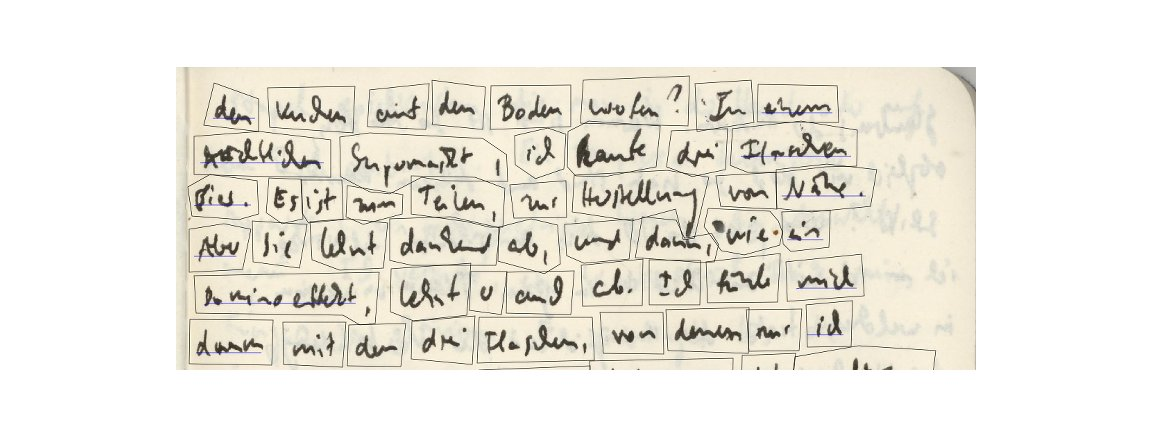 den Kuchen auf den Boden werfen? In einem
Supermarkt, ich kaufte drei Flaschen
Bier. Es ist zum Teilen, zur Herstellung von Nähe.
Aber sie lehnt dankend ab, und dann, wie ein
Dominoeffekt, lehnt U auch ab. Ich fühle mich
dumm mit den drei Flaschen, von denen nur ich